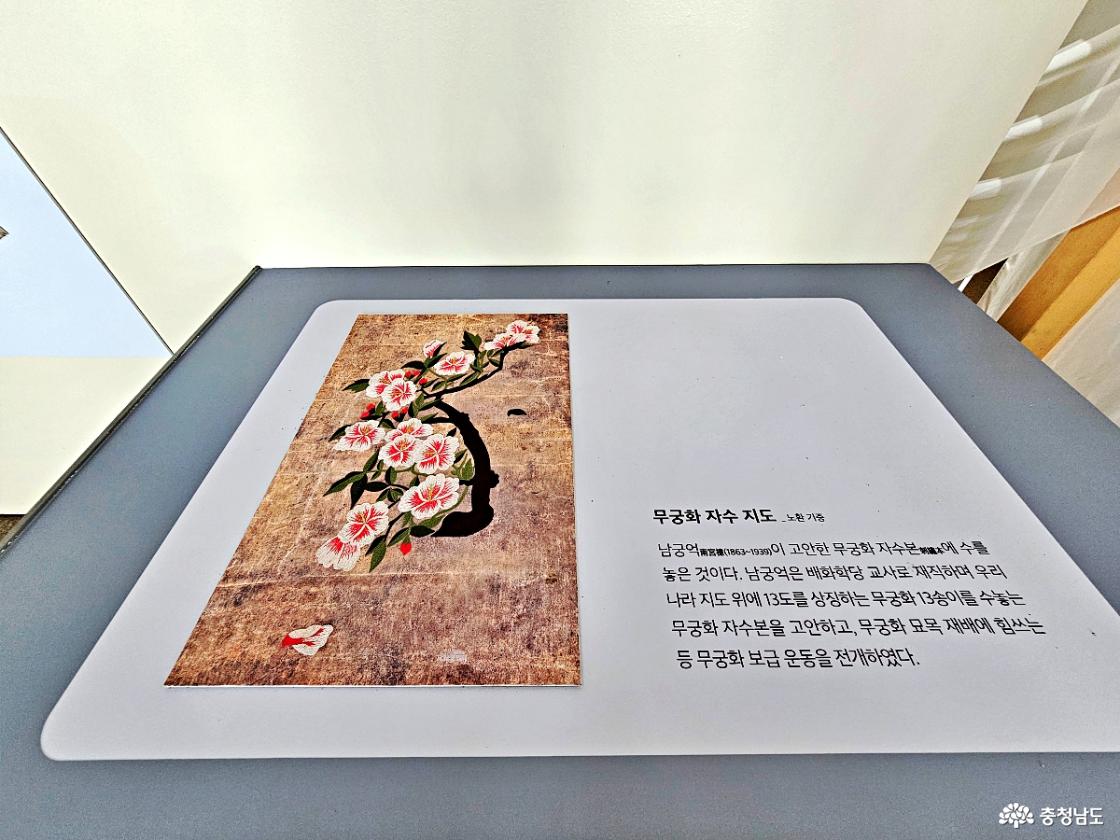 무궁화 자수 지도 _노환 기증
남궁억南宮檍(1863~1939)이 고안한 무궁화 자수본刺繡本에 수를
놓은 것이다. 남궁억은 배화학당 교사로 재직하며 우리
나라 지도 위에 13도를 상징하는 무궁화 13송이를 수놓는
무궁화 자수본을 고안하고, 무궁화 묘목 재배에 힘쓰는
등 무궁화 보급 운동을 전개하였다.
충청남도